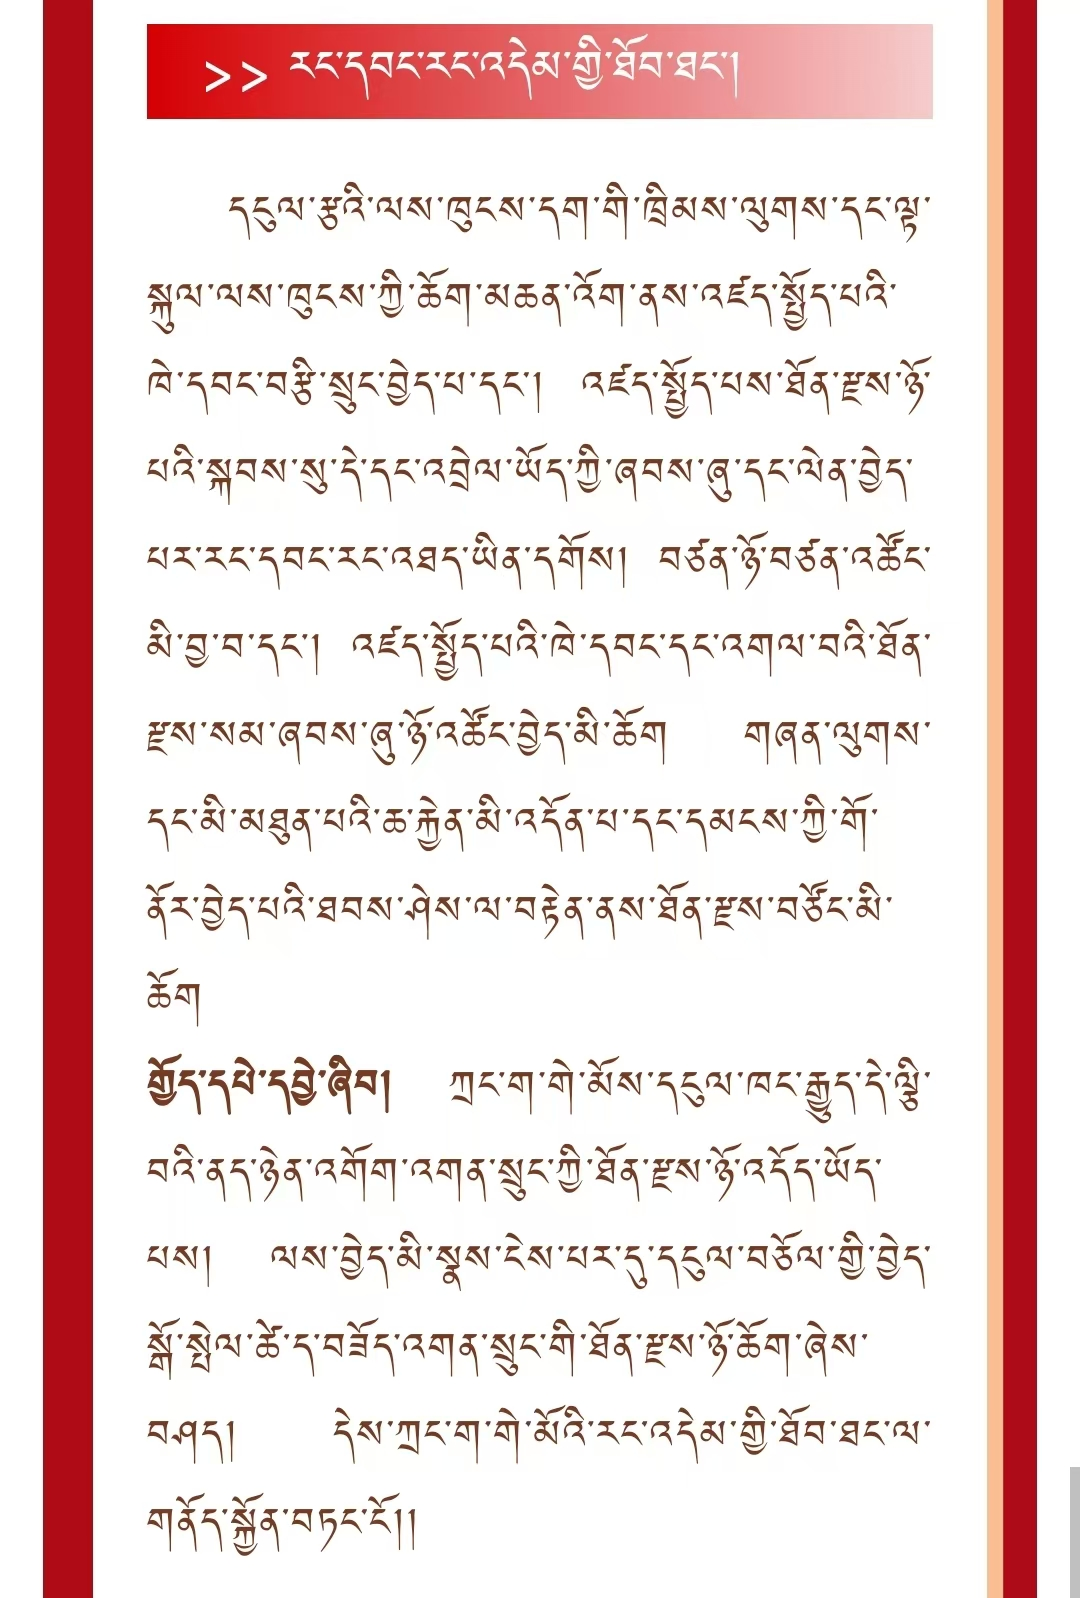 >> རང་དབང་རང་འདེམ་གྱི་ཐོབ་ཐང་།
དངུལ་རྩའི་ལས་ཁུངས་དག་གི་ཁྲིམས་ལུགས་དང་ལྟ་
སྐུལ་ལས་ཁུངས་ཀྱི་ཆོག་མཆན་འོག་ནས་འཛད་སྤྱོད་པའི་
ཁེ་དབང་བརྩི་སྲུང་བྱེད་པ་དང་། འཛད་སྤྱོད་པས་ཐོན་རྫས་ཉོ་
པའི་སྐབས་སུ་དེ་དང་འབྲེལ་ཡོད་ཀྱི་ཞབས་ཞུ་དང་ལེན་བྱེད་
པར་རང་དབང་རང་འཐད་ཡིན་དགོས། བཙན་ཉོ་བཙན་འཚོང་
མི་བྱ་བ་དང་། འཛད་སྤྱོད་པའི་ཁེ་དབང་དང་འགལ་བའི་ཐོན་
རྫས་སམ་ཞབས་ཞུ་ཉོ་འཚོང་བྱེད་མི་ཆོག གཞན་ལུགས་
དང་མི་མཐུན་པའི་ཆ་རྐྱེན་མི་འདོན་པ་དང་དམངས་ཀྱི་གོ་
ནོར་བྱེད་པའི་ཐབས་ཤེས་ལ་བརྟེན་ནས་ཐོན་རྫས་བཙོང་མི་
ཆོག
གྱོད་དཔེ་དབྱེ་ཞིབ། ཀྲང་ག་གེ་མོས་དངུལ་ཁང་རྒྱུད་དེ་ལྕི་
བའི་ནད་ཉེན་འགོག་འགན་སྲུང་ཀྱི་ཐོན་རྫས་ཉོ་འདོད་ཡོད་
པས། ལས་བྱེད་མི་སྣས་ངེས་པར་དུ་དངུལ་བཅོལ་གྱི་བྱེད་
སྒོ་སྤེལ་ཚེ་ད་བཟོད་འགན་སྲུང་གི་ཐོན་རྫས་ཉོ་ཆོག་ཞེས་
བཤད། དེས་ཀྲང་ག་གེ་མོའི་རང་འདེམ་གྱི་ཐོབ་ཐང་ལ་
གནོད་སྐྱོན་བཏང་ངོ།།